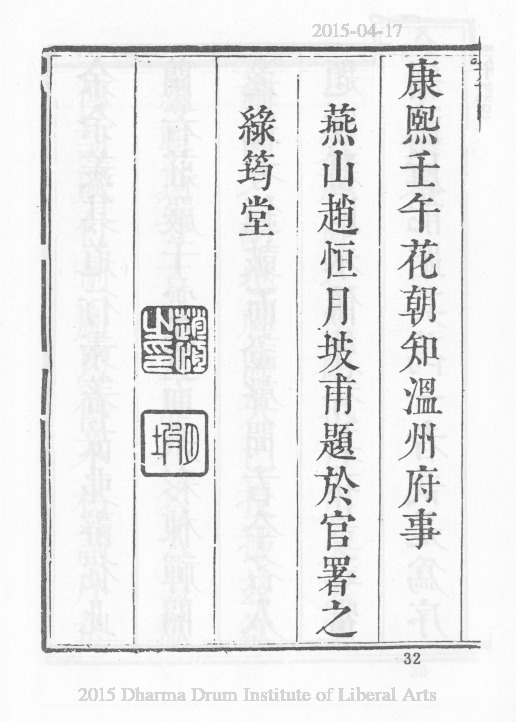 2015-04-17
康熙壬午花朝知溫州府事
燕山趙恒月坡甫題於官署之
綠筠堂
趙恒之印
月坡
32
2015 Dharma Drum Institute of Liberal Arts